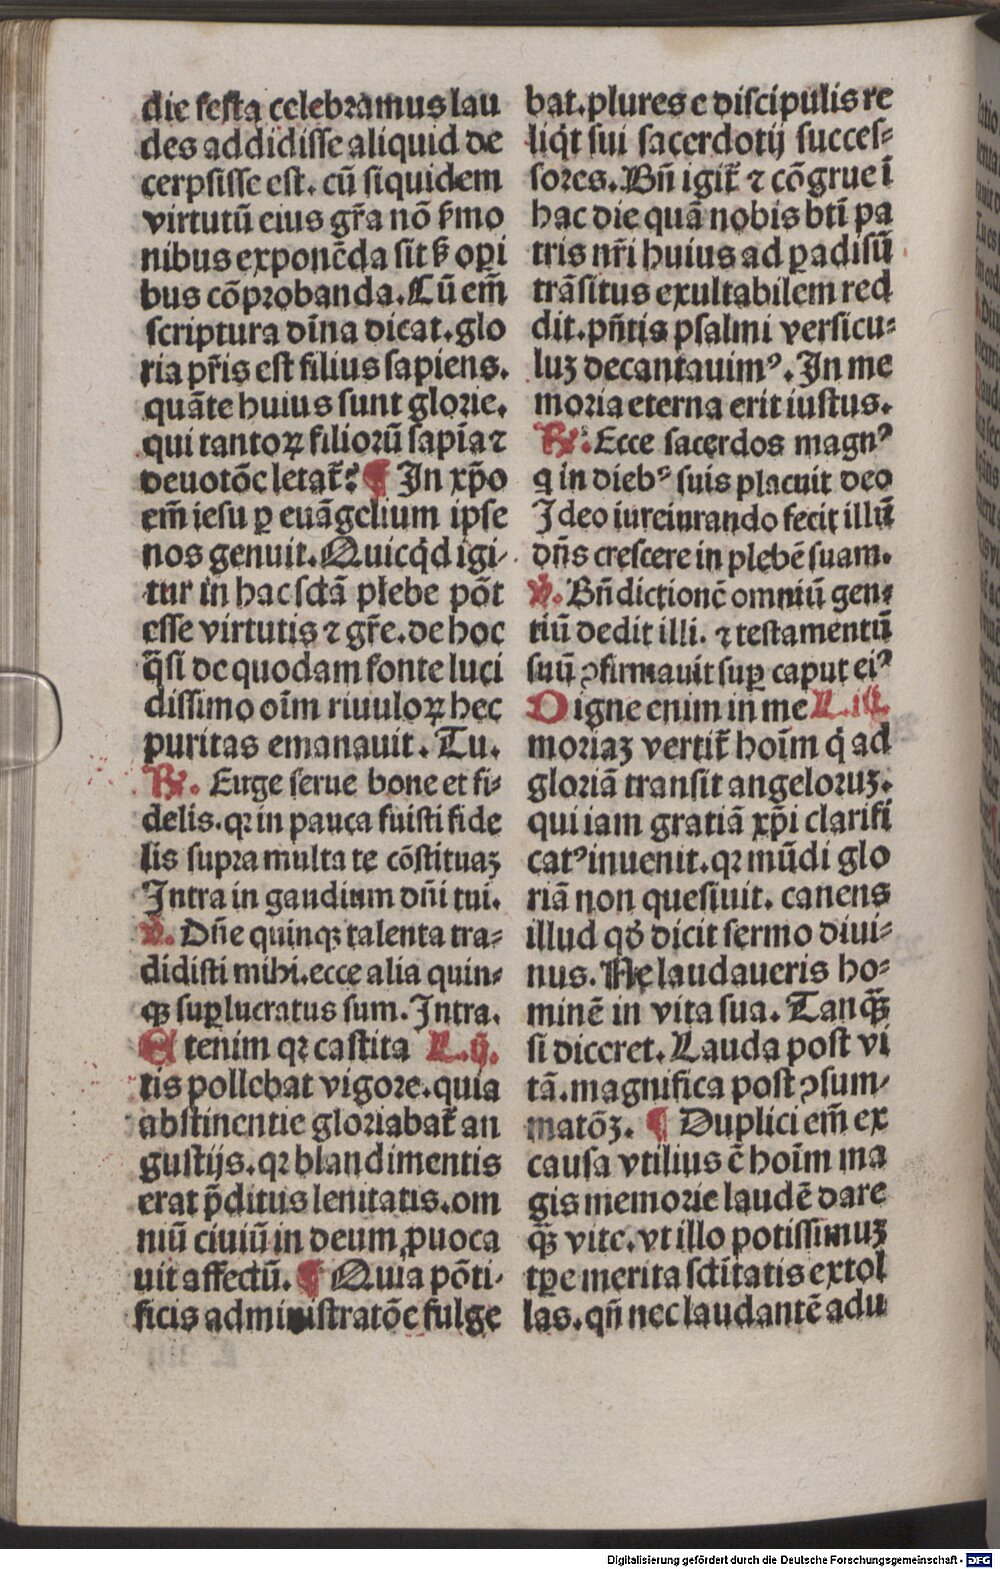 die festa celebramus lau
des addidisse aliquid de
cerpsisse est. cū siquidem
virtutū eius gr̄a nō ẜmo
nibus exponēda sit ẜ oꝑi
bus cōprobanda. Cū em̄
scriptura dīna dicat. glo
ria pr̄is est filius sapiens.
quāte huius sunt glorie.
qui tantoꝝ filioꝛū sapīa ⁊
deuotōe letat᷑? ¶ In xp̄o
em̄ iesu ꝑ euāgelium ipse
nos genuit. Quicq̇d igi-
tur in hac sctā plebe pōt
esse virtutis ⁊ gr̄e. de hoc
q̄si de quodam fonte luci
dissimo oīm riuuloꝝ hec
puritas emanauit. Tu.
℟. Euge serue bone et fi-
delis. qꝛ in pauca fuisti fide
lis supra multa te cōstituaꝫ
Intra in gaudium dn̄i tui.
℣. Dn̄e quinqꝫ talenta tra-
didisti mihi. ecce alia quin-
qꝫ suꝑlucratus sum. Intra.
Etenim qꝛ castita L. ij.
tis pollebat vigore. quia
abstinentie gloriabat᷑ an
gustijs. qꝛ blandimentis
erat p̄ditus lenitatis. om
niū ciuiū in deum ꝓuoca
uit affectū. ¶ Quia pōti-
ficis administratōe fulge
bat. plures e discipulis re
liq̇t sui sacerdotij succes-
sores. Bn̄ igit᷑ ⁊ cōgrue ī
hac die quā nobis btī pa
tris nr̄i huius ad ꝑadisū
trāsitus exultabilem red
dit. pn̄tis psalmi versicu-
luꝫ decantauimꝰ. In me
moria eterna erit iustus.
℟. Ecce sacerdos magnꝰ
q in diebꝰ suis placuit deo
Ideo iureiurando fecit illū
dn̄s crescere in plebē suam.
℣. Bn̄dictionē omniū gen-
tiū dedit illi. ⁊ testamentū
suū ꝯfirmauit suꝑ caput eiꝰ
Digne enim in me L. iij.
moriaꝫ vertit᷑ hoīm q̇ ad
gloriā transit angeloruꝫ.
qui iam gratiā xp̄i clarifi
catꝰ inuenit. qꝛ mūdi glo
riā non quesiuit. canens
illud qđ dicit sermo diui-
nus. Ne laudaueris ho-
minē in vita sua. Tanqꝫ̄
si diceret. Lauda post vi
tā. magnifica post ꝯsum-
matōꝫ. ¶ Duplici em̄ ex
causa vtilius ē hoīm ma
gis memorie laudē dare
qꝫ̄ vite. vt illo potissimuꝫ
tꝑe merita sctītatis extol
las. qn̄ nec laudantē adu